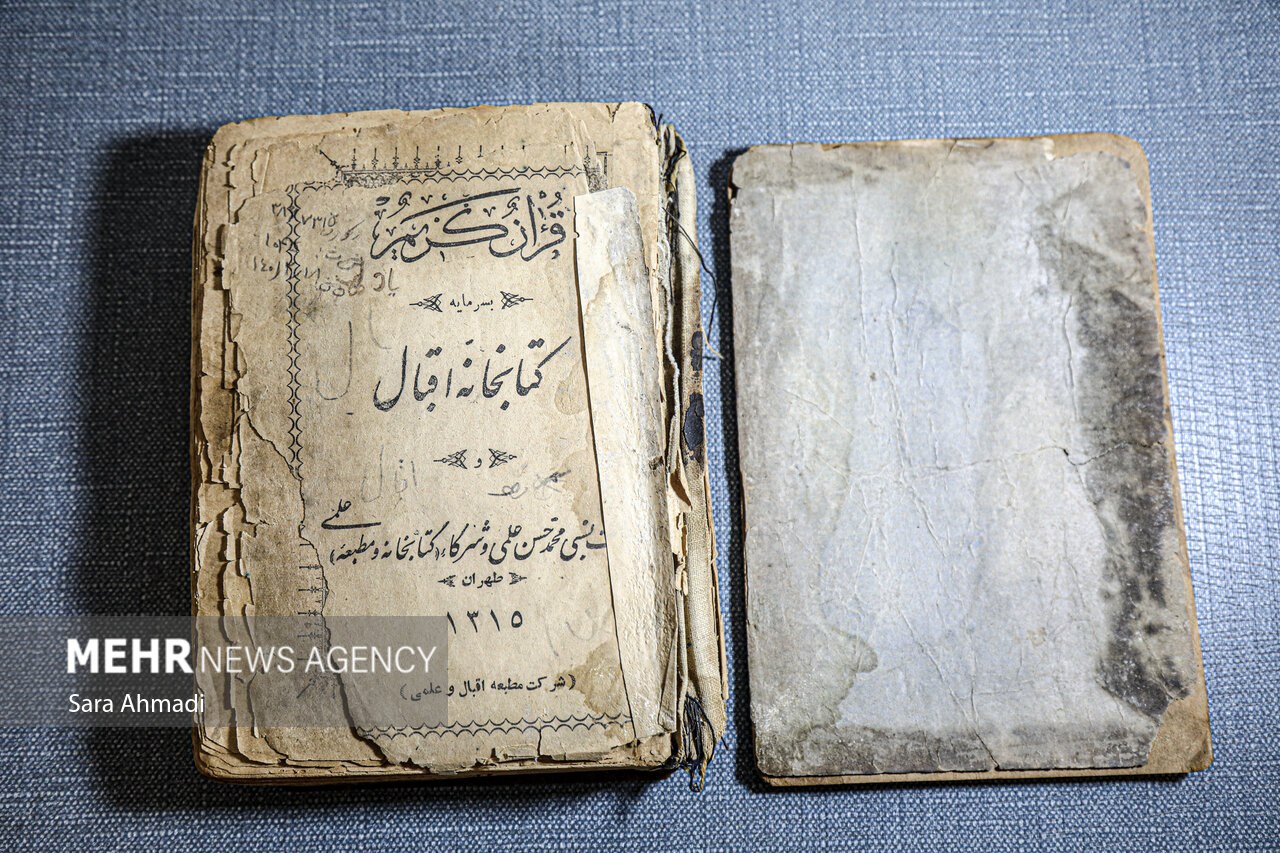 قرآن کریم
بسرمایه
کتابخانه اقبال
و
محمد حسن علمی و شرکاء (کتابخانه و مطبعه) علمی
طهران
۱۳۱۵
(شرکت مطبعه اقبال و علمی)
MEHR NEWS AGENCY
Sara Ahmadi